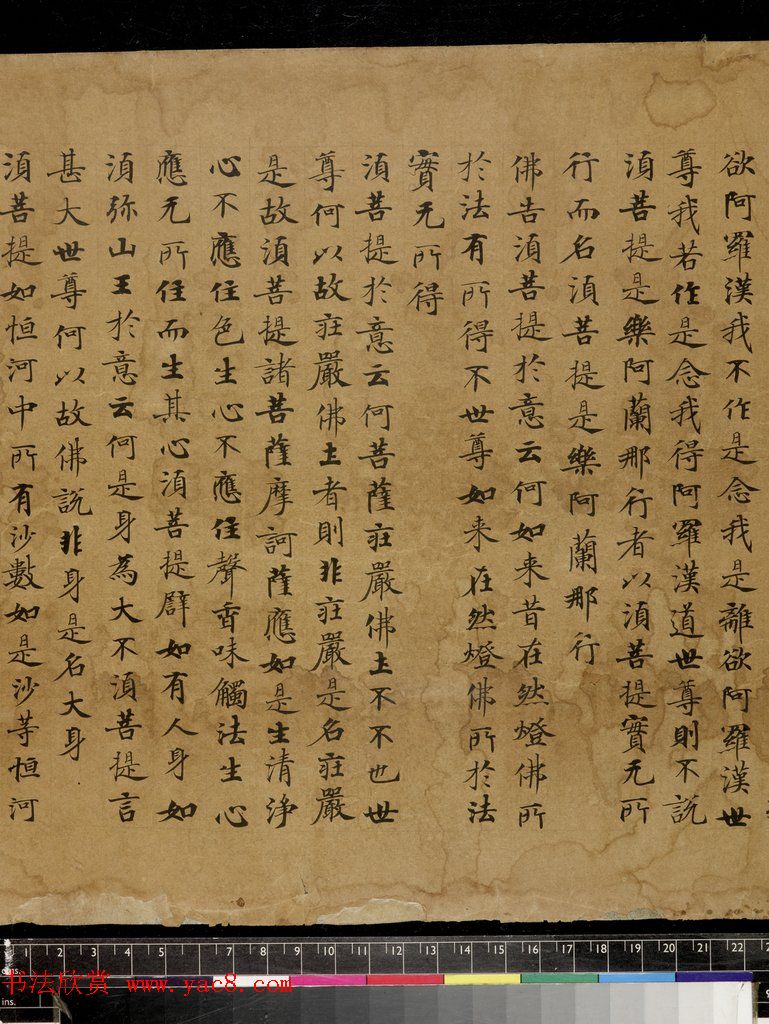 欲阿羅漢我不作是念我是離欲阿羅漢世
尊我若作是念我得阿羅漢道世尊則不説
湏菩提是樂阿蘭那行者以湏菩提實无所
行而名湏菩提是樂阿蘭那行
佛告湏菩提於意云何如来昔在然燈佛所
於法有所得不世尊如来在然燈佛所於法
實无所得
湏菩提於意云何菩薩莊嚴佛土不不也世
尊何以故莊嚴佛土者則非莊嚴是名莊嚴
是故湏菩提諸菩薩摩訶薩應如是生清淨
心不應住色生心不應住聲香味觸法生心
應无所住而生其心湏菩提辟如有人身如
湏弥山王於意云何是身為大不湏菩提言
甚大世尊何以故佛説非身是名大身
湏菩提如恒河中所有沙數如是沙等恒河
cms. 1 2 3 4 5 7 8 9 10 11 12 13 14 15 16 17 18 19 20 21 22 23
书法欣赏 www.yac8.com
ins.